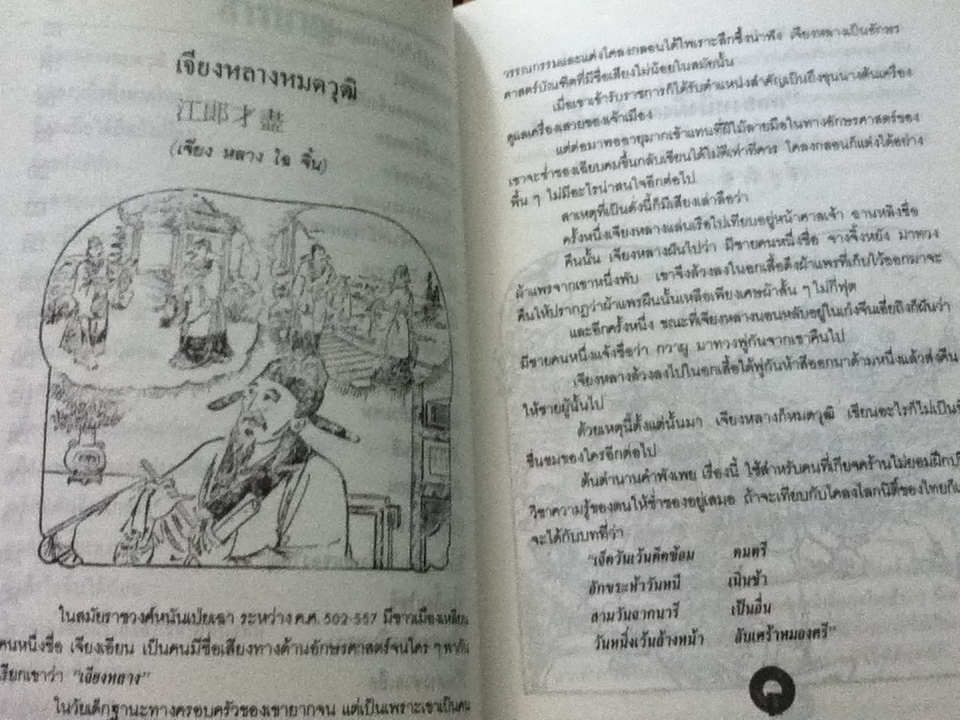 เจียงหลางหมดวุฒิ
江郎才盡
(เจียง หลาง ใฉ จิ้น)
ในสมัยราชวงศ์หนันเป่ยเฉา ระหว่าง ค.ศ. 502-557 มีชาวเมืองเหลียง
คนหนึ่งชื่อ เจียงเอียน เป็นคนมีชื่อเสียงทางด้านอักษรศาสตร์จนใคร ๆ พากัน
เรียกเขาว่า "เจียงหลาง"
ในวัยเด็กฐานะทางครอบครัวของเขายากจน แต่เป็นเพราะเขาเป็นคน
วรรณกรรมและแต่งโคลงกลอนได้ไพเราะลึกซึ้งน่าฟัง เจียงหลางเป็นอักษร
ศาสตร์บัณฑิตที่มีชื่อเสียงไม่น้อยในสมัยนั้น
เมื่อเขาเข้ารับราชการก็ได้รับตำแหน่งสำคัญเป็นถึงขุนนางต้นเครื่อง
ดูแลเครื่องเสวยของเจ้าเมือง
แต่ต่อมาพออายุมากเข้าแทนที่ฝีไม้ลายมือในทางอักษรศาสตร์ของ
เขาจะช่ำชองเฉียบคมขึ้นกลับเขียนได้ไม่ดีเท่าที่ควร โคลงกลอนก็แต่งได้อย่าง
พื้น ๆ ไม่มีอะไรน่าสนใจอีกต่อไป
สาเหตุที่เป็นดั่งนี้ก็มีเสียงเล่าลือว่า
ครั้งหนึ่งเจียงหลางแล่นเรือไปเทียบอยู่หน้าศาลเจ้า ฉานหลิงซื่อ
คืนนั้น เจียงหลางฝันไปว่า มีชายคนหนึ่งชื่อ จางจิ้งหยัง มาทวง
ผ้าแพรจากเขาหนึ่งพับ เขาจึงล้วงลงในอกเสื้อดึงผ้าแพรที่เก็บไว้ออกมาจะ
คืนให้ปรากฏว่าผ้าแพรผืนนั้นเหลือเพียงเศษผ้าสั้น ๆ ไม่กี่ฟุต
และอีกครั้งหนึ่ง ขณะที่เจียงหลางนอนหลับอยู่ในเก๋งจีนเยี่ยถิงก็ฝันว่า
มีชายคนหนึ่งแจ้งชื่อว่า กวาผู มาทวงพู่กันจากเขาคืนไป
เจียงหลางล้วงลงไปในอกเสื้อได้พู่กันห้าสีออกมาด้ามหนึ่งแล้วส่งคืน
ให้ชายผู้นั้นไป
ด้วยเหตุนี้ตั้งแต่นั้นมา เจียงหลางก็หมดวุฒิ เขียนอะไรก็ไม่เป็นที่
ชื่นชมของใครอีกต่อไป
ต้นตำนานคำพังเพย เรื่องนี้ ใช้สำหรับคนที่เกียจคร้านไม่ยอมฝึกปรื
วิชาความรู้ของตนให้ช่ำชองอยู่เสมอ ถ้าจะเทียบกับโคลงโลกนิติ์ของไทยก็
จะได้กับบทที่ว่า
"เจ็ดวันเว้นดีดซ้อม ดนตรี
อักขระห้าวันหนี เนิ่นช้า
สามวันจากนารี เป็นอื่น
วันหนึ่งเว้นล้างหน้า อับเศร้าหมองศรี"
๑